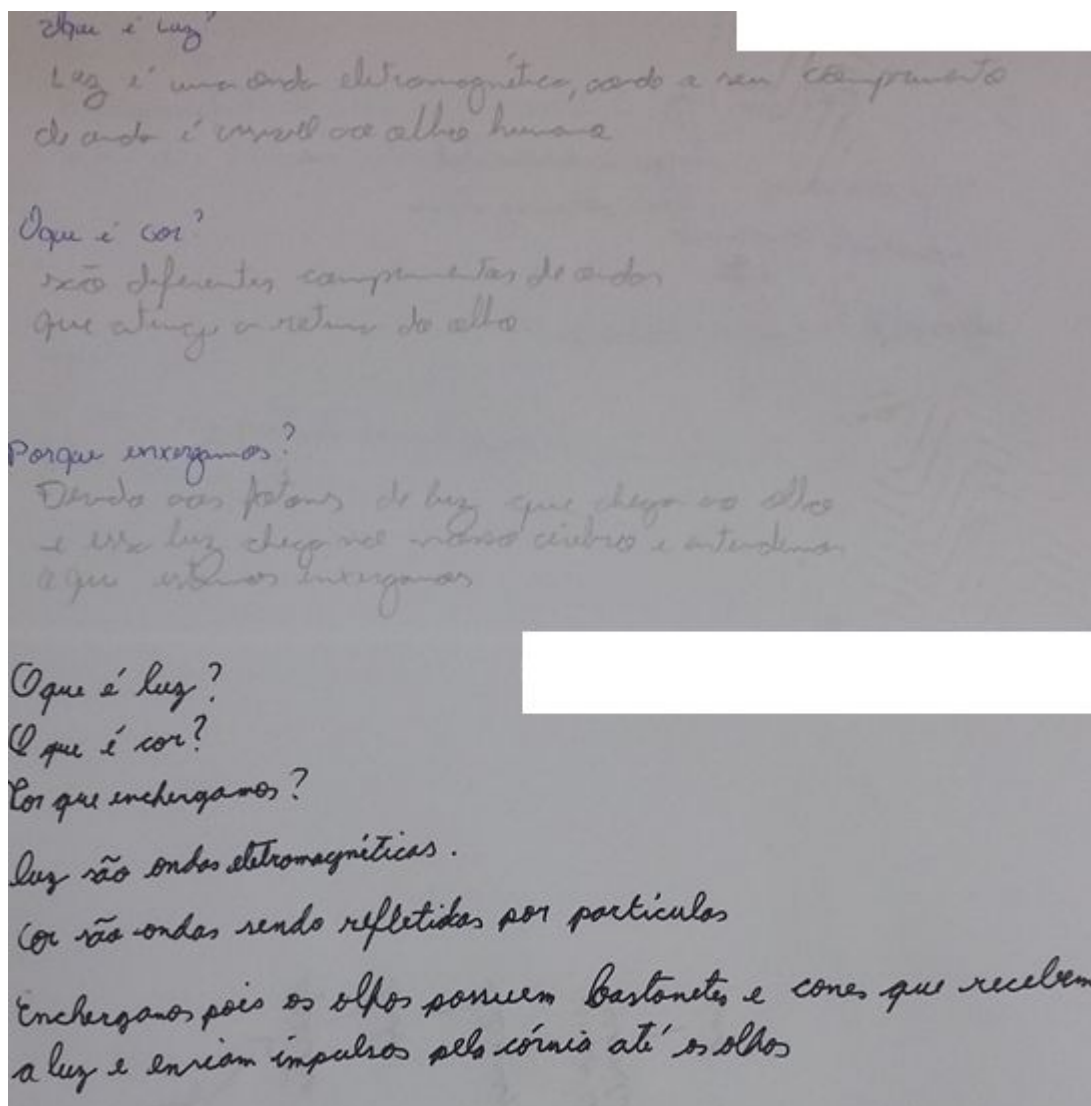 Oque é Luz?
Luz é uma onda eletromagnética, onde a seu comprimento
de onda é visível ao olho humano
Oque é cor?
são diferentes comprimentos de ondas
que atinge a retina do olho
Porque enxergamos?
Devido aos fotons de luz que chega ao olho
e essa luz chega no nosso cérebro e entendemos
o que estamos enxergamos
Oque é luz?
O que é cor?
Por que enchergamos?
luz são ondas eletromagnéticas.
Cor são ondas sendo refletidas por partículas
Enchergamos pois os olhos possuem bastonetes e cones que recebem
a luz e enviam impulsos pela córnia até os olhos